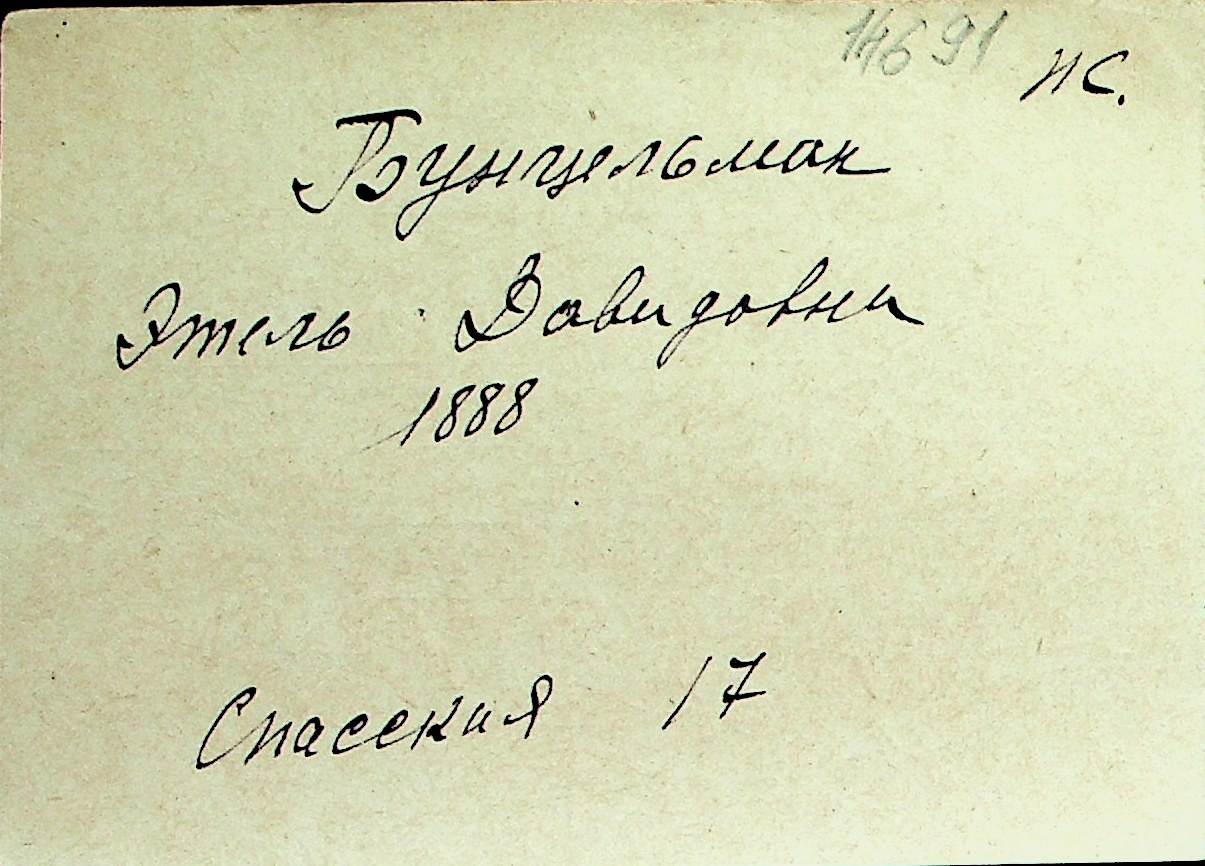 14691 ис.
Бунцельман
Этель Давидовна
1888
Спасская 17